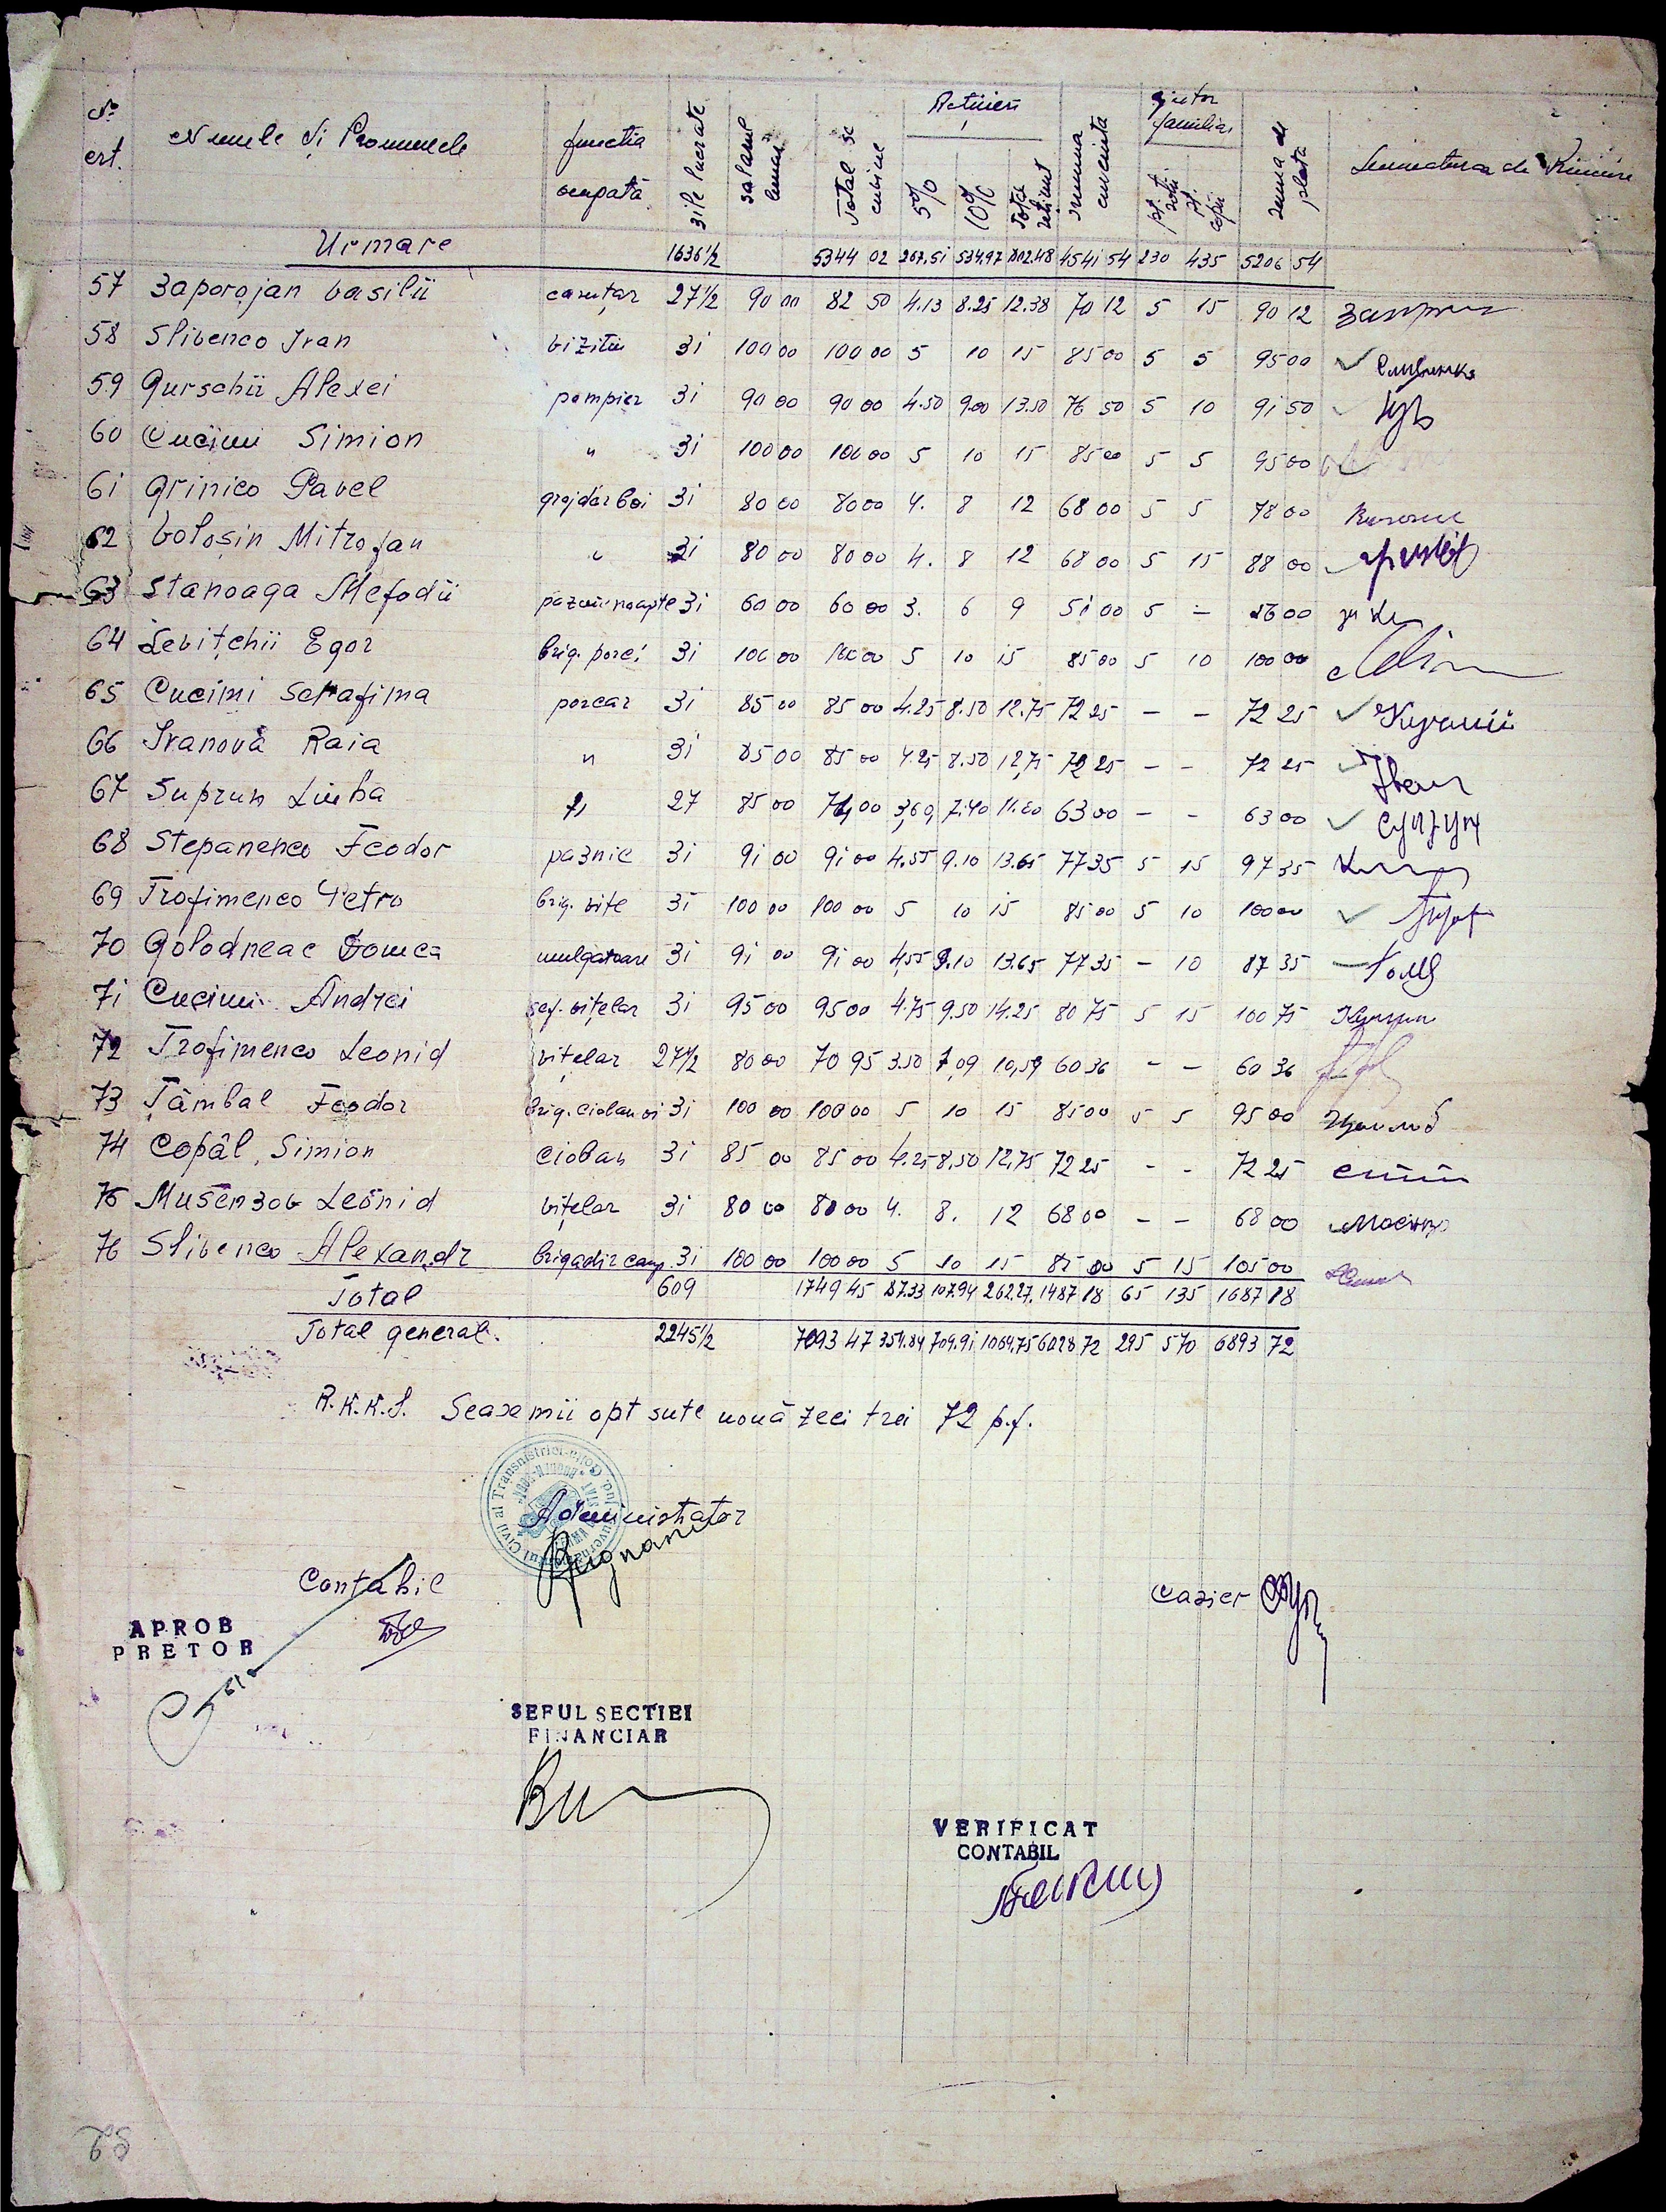 No crt. Numele și Pronumele functia ocupată zile lucrate salarul lunar Total se cuvine Rețineri 5% 10% Total reținut suma cuvenita ajutor familiar pt. soții pt. copii suma de plata Semnatura de Primire
Urmare 1636 1/2 5344 02 267.51 534.97 802.48 4541 54 230 435 5206 54
57 Zaporojan Vasilii carutar 27 1/2 90 00 82 50 4.13 8.25 12.38 70 12 5 15 90 12
58 Slivenco Ivan vizitiu 31 100 00 100 00 5 10 15 85 00 5 5 95 00 Сливенко
59 Gurschii Alexei pompier 31 90 00 90 00 4.50 9.00 13.50 76 50 5 10 91 50
60 Cucimii Simion " 31 100 00 100 00 5 10 15 85 00 5 5 95 00
61 Grinico Pavel grajdar boi 31 80 00 80 00 4. 8 12 68 00 5 5 78 00
62 Voloșin Mitrofan " 31 80 00 80 00 4. 8 12 68 00 5 15 88 00
63 Stanoaga Mefodii paznic noapte 31 60 00 60 00 3. 6 9 51 00 5 – 56 00
64 Levițchii Egor brig. porci 31 100 00 100 00 5 10 15 85 00 5 10 100 00
65 Cucimi Serafima porcar 31 85 00 85 00 4.25 8.50 12.75 72 25 – – 72 25
66 Ivanova Raia " 31 85 00 85 00 4.25 8.50 12,75 72 25 – – 72 25 Иван
67 Suprun Liuba " 27 85 00 74,00 3,60, 7.40 11.00 63 00 – – 63 00 Супрун
68 Stepanenco Feodor paznic 31 91 00 91 00 4.55 9.10 13.65 77 35 5 15 97 35
69 Trofimenco Petro brig. vite 31 100 00 100 00 5 10 15 85 00 5 10 100 00
70 Golodneac Domca mulgatoare 31 91 00 91 00 4,55 9.10 13.65 77 35 – 10 87 35
71 Cucimii Andrei șef. vițelar 31 95 00 95 00 4.75 9.50 14.25 80 75 5 15 100 75
72 Trofimenco Leonid vițelar 27 1/2 80 00 70 95 3.50 7,09 10,59 60 36 – – 60 36
73 Țâmbal Feodor brig. cioban oi 31 100 00 100 00 5 10 15 85 00 5 5 95 00
74 Copâl, Simion cioban 31 85 00 85 00 4.25 8,50 12,75 72 25 – – 72 25
75 Leonid vițelar 31 80 00 80 00 4. 8. 12 68 00 – – 68 00
76 Slivenco Alexandr brigadir camp. 31 100 00 100 00 5 10 15 85 00 5 15 105 00
Total 609 1749 45 87.33 107.94 262.27. 1487 18 65 135 1687 18
Total general. 2245 1/2 7093 47 354.84 709.91 1064.75 6028 72 295 570 6893 72
R.K.K.S. Sease mii opt sute nouă zeci trei 72 p.f.
Guvernământul Civil al Transnistriei Jud. Golta
Administrator
Contabil
Casier
APROB
PRETOR
SEFUL SECTIEI
FINANCIAR
VERIFICAT
CONTABIL